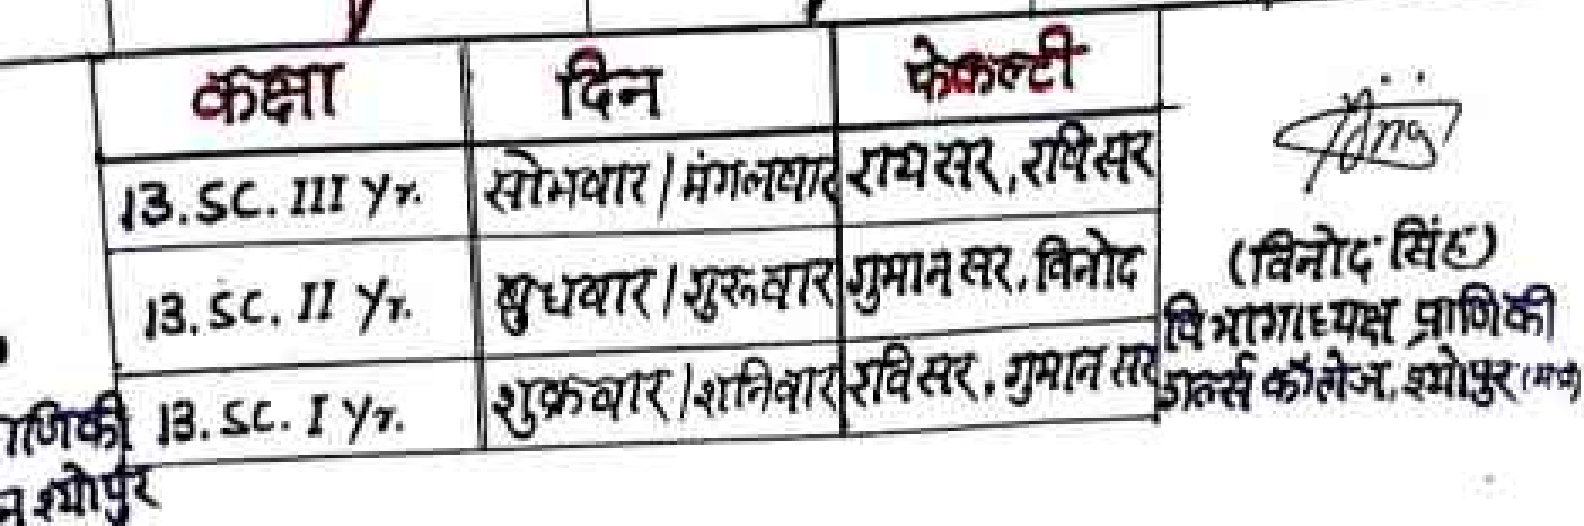 कक्षा दिन फेकल्टी
B.SC. III Yr. सोमवार / मंगलवार राय सर, रवि सर
B.SC. II Yr. बुधवार / गुरूवार गुमान सर, विनोद
B.SC. I Yr. शुक्रवार / शनिवार रवि सर, गुमान सर
(विनोद सिंह)
विभागाध्यक्ष प्राणिकी
गर्ल्स कॉलेज, श्योपुर (म.प्र)
श्योपुर